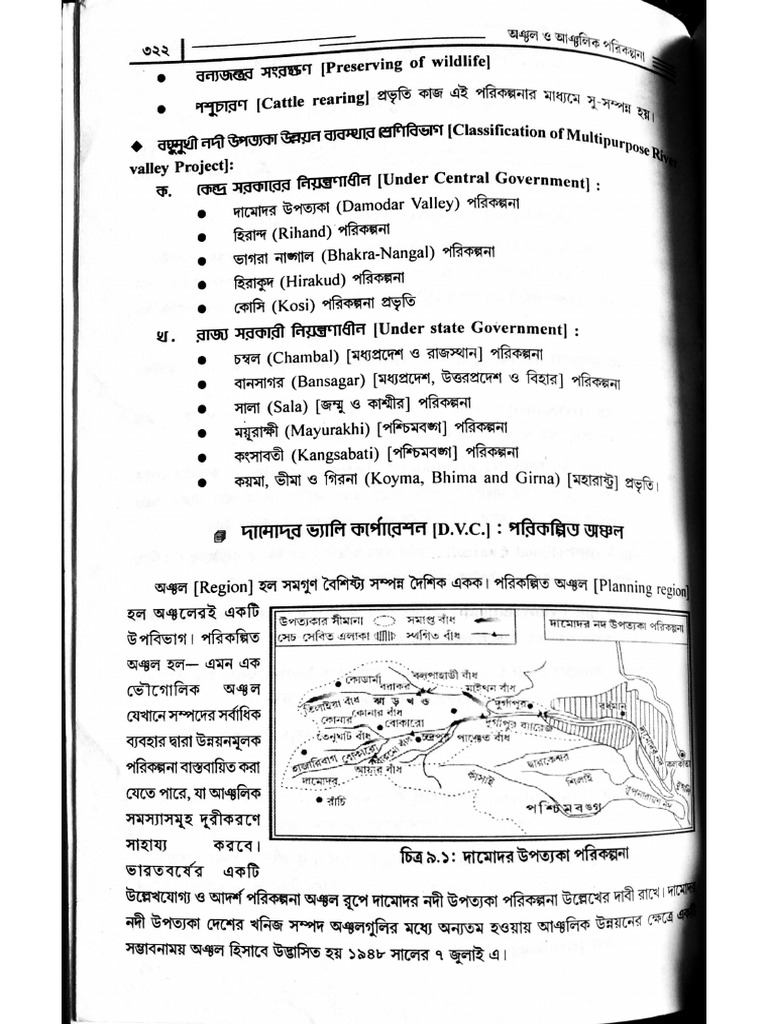 ৩২২
অঞ্চল ও আঞ্চলিক পরিকল্পনা
● বন্যজন্তুর সংরক্ষণ [Preserving of wildlife]
● পশুচারণ [Cattle rearing] প্রভৃতি কাজ এই পরিকল্পনার মাধ্যমে সু-সম্পন্ন হয়।
◆ বহুমুখী নদী উপত্যকা উন্নয়ন ব্যবস্থার শ্রেণিবিভাগ [Classification of Multipurpose River
valley Project]:
ক. কেন্দ্র সরকারের নিয়ন্ত্রণাধীন [Under Central Government] :
● দামোদর উপত্যকা (Damodar Valley) পরিকল্পনা
● হিরান্দ (Rihand) পরিকল্পনা
● ভাগরা নাঙ্গাল (Bhakra-Nangal) পরিকল্পনা
● হিরাকুদ (Hirakud) পরিকল্পনা
● কোসি (Kosi) পরিকল্পনা প্রভৃতি
খ. রাজ্য সরকারী নিয়ন্ত্রণাধীন [Under state Government] :
● চম্বল (Chambal) [মধ্যপ্রদেশ ও রাজস্থান] পরিকল্পনা
● বানসাগর (Bansagar) [মধ্যপ্রদেশ, উত্তরপ্রদেশ ও বিহার] পরিকল্পনা
● সালা (Sala) [জম্মু ও কাশ্মীর] পরিকল্পনা
● ময়ূরাক্ষী (Mayurakhi) [পশ্চিমবঙ্গ] পরিকল্পনা
● কংসাবতী (Kangsabati) [পশ্চিমবঙ্গ] পরিকল্পনা
● কয়মা, ভীমা ও গিরনা (Koyma, Bhima and Girna) [মহারাষ্ট্র] প্রভৃতি।
দামোদর ভ্যালি কর্পোরেশন [D.V.C.] : পরিকল্পিত অঞ্চল
অঞ্চল [Region] হল সমগুণ বৈশিষ্ট্য সম্পন্ন দৈশিক একক। পরিকল্পিত অঞ্চল [Planning region]
হল অঞ্চলেরই একটি
উপবিভাগ। পরিকল্পিত
অঞ্চল হল— এমন এক
ভৌগোলিক অঞ্চল
যেখানে সম্পদের সর্বাধিক
ব্যবহার দ্বারা উন্নয়নমূলক
পরিকল্পনা বাস্তবায়িত করা
যেতে পারে, যা আঞ্চলিক
সমস্যাসমূহ দূরীকরণে
সাহায্য করবে।
ভারতবর্ষের একটি
উপত্যকার সীমানা সমাপ্ত বাঁধ
সেচ সেবিত এলাকা স্থগিত বাঁধ
দামোদর নদ উপত্যকা পরিকল্পনা
কোডার্মা
বলপাহাড়ী বাঁধ
বরাকর
মাইথন বাঁধ
তিলাইয়া বাঁধ
ঝাড়খণ্ড
দুর্গাপুর
বর্ধমান
কোনার বাঁধ
কোনার
বোকারো
দুর্গাপুর ব্যারেজ
তেনুঘাট বাঁধ
চন্দ্রপুরা
পাঞ্চেত বাঁধ
হাজারিবাগ বোকারো
আয়ার বাঁধ
দামোদর
দ্বারকেশ্বর
কলকাতা
রাঁচি
কাঁসাই
শিলাই
রূপনারায়ণ নদ
পশ্চিমবঙ্গ
চিত্র ৯.১: দামোদর উপত্যকা পরিকল্পনা
উল্লেখযোগ্য ও আদর্শ পরিকল্পনা অঞ্চল রূপে দামোদর নদী উপত্যকা পরিকল্পনা উল্লেখের দাবী রাখে। দামোদর
নদী উপত্যকা দেশের খনিজ সম্পদ অঞ্চলগুলির মধ্যে অন্যতম হওয়ায় আঞ্চলিক উন্নয়নের ক্ষেত্রে একটি
সম্ভাবনাময় অঞ্চল হিসাবে উদ্ভাসিত হয় ১৯৪৮ সালের ৭ জুলাই এ।